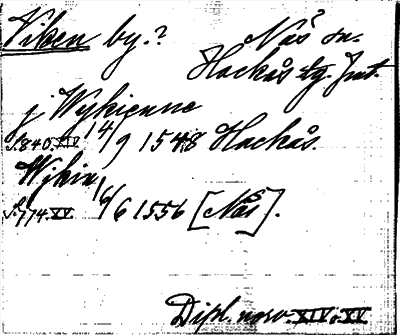 Viken by.? Näs sn.
Hackås tg. Jmt.
j Wykienne
S.840.XIV 14/9 1548 Hackås.
Wikin
S.774.XV 16/6 1556 [Näs].
Dipl. norv. XIV o. XV